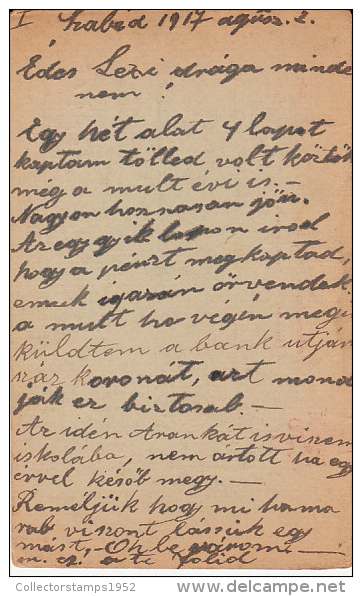 I Szabéd 1917 agusz. 2.
Édes Lesi drága minde
nem!
Egy hét alat 4 lapot
kaptam tölled volt köztök
még a mult évi is.-
Nagyon hoznasan jön.
Az egyik lapon irod
hogy a pénzt megkaptad,
ennek igazán örvendek.
a mult ho végén megi
küldtem a bank utján
száz koronát, azt mond
ják ez biztosab. -
Az idén Arankát is viszem
iskolába, nem ártott ha egy
évvel késöb megy. -
Reméljük hogy mi hama
rab viszont lássuk egy
mást, - Oh be várom -
a te
CollectorStamps1952